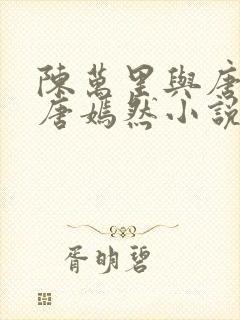 陳萬里與唐
唐嫣然小說
胥明碧